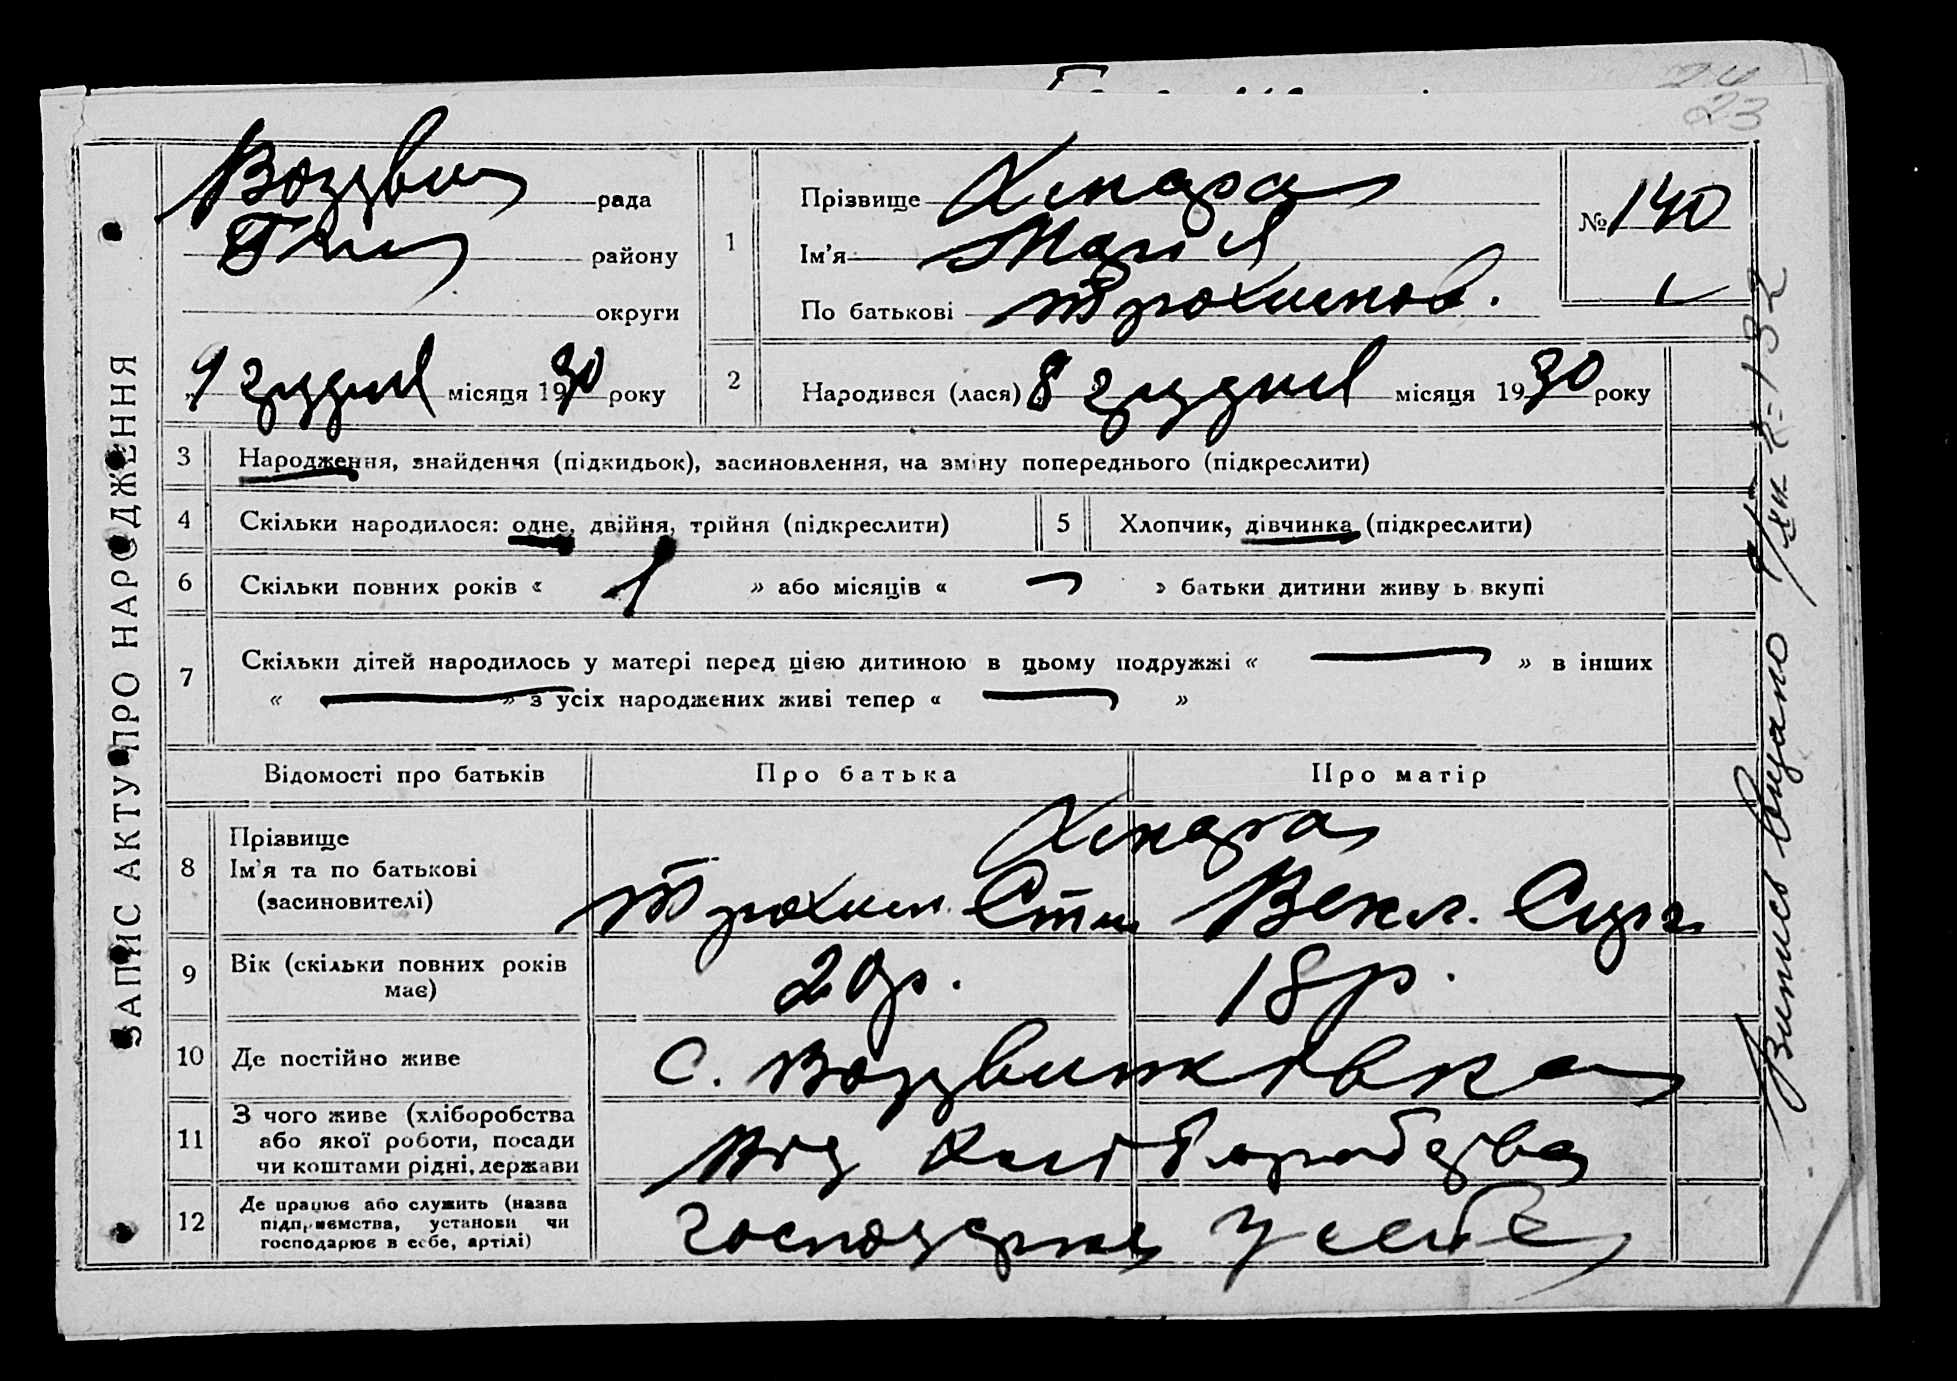 24
23
ЗАПИС АКТУ ПРО НАРОДЖЕННЯ
Воздви рада
району
округи
9 грудня місяця 1930 року
1
Прізвище Хмара
Ім'я Марія
По батькові Трохимов.
№ 140
2
Народився (лася) 8 грудня місяця 1930 року
3 Народження, знайдення (підкидьок), засиновлення, на зміну попереднього (підкреслити)
4 Скільки народилося: одне, двійня, трійня (підкреслити)
5 Хлопчик, дівчинка (підкреслити)
6 Скільки повних років « 1 » або місяців « — » батьки дитини живу ь вкупі
7 Скільки дітей народилось у матері перед цією дитиною в цьому подружжі « — » в інших
« — » з усіх народжених живі тепер « — »
Відомості про батьків Про батька Про матір
8 Прізвище
Ім'я та по батькові
(засиновителі)
Хмара
Трохим Векл.
9 Вік (скільки повних років
має)
20р. 18р.
10 Де постійно живе с. Воздвижівка
11 З чого живе (хліборобства
або якої роботи, посади
чи коштами рідні, держави
Від хліборобства
12 Де працює або служить (назва
підприємства, установи чи
господарює в себе, артілі)
господарює у себе
Випись видано